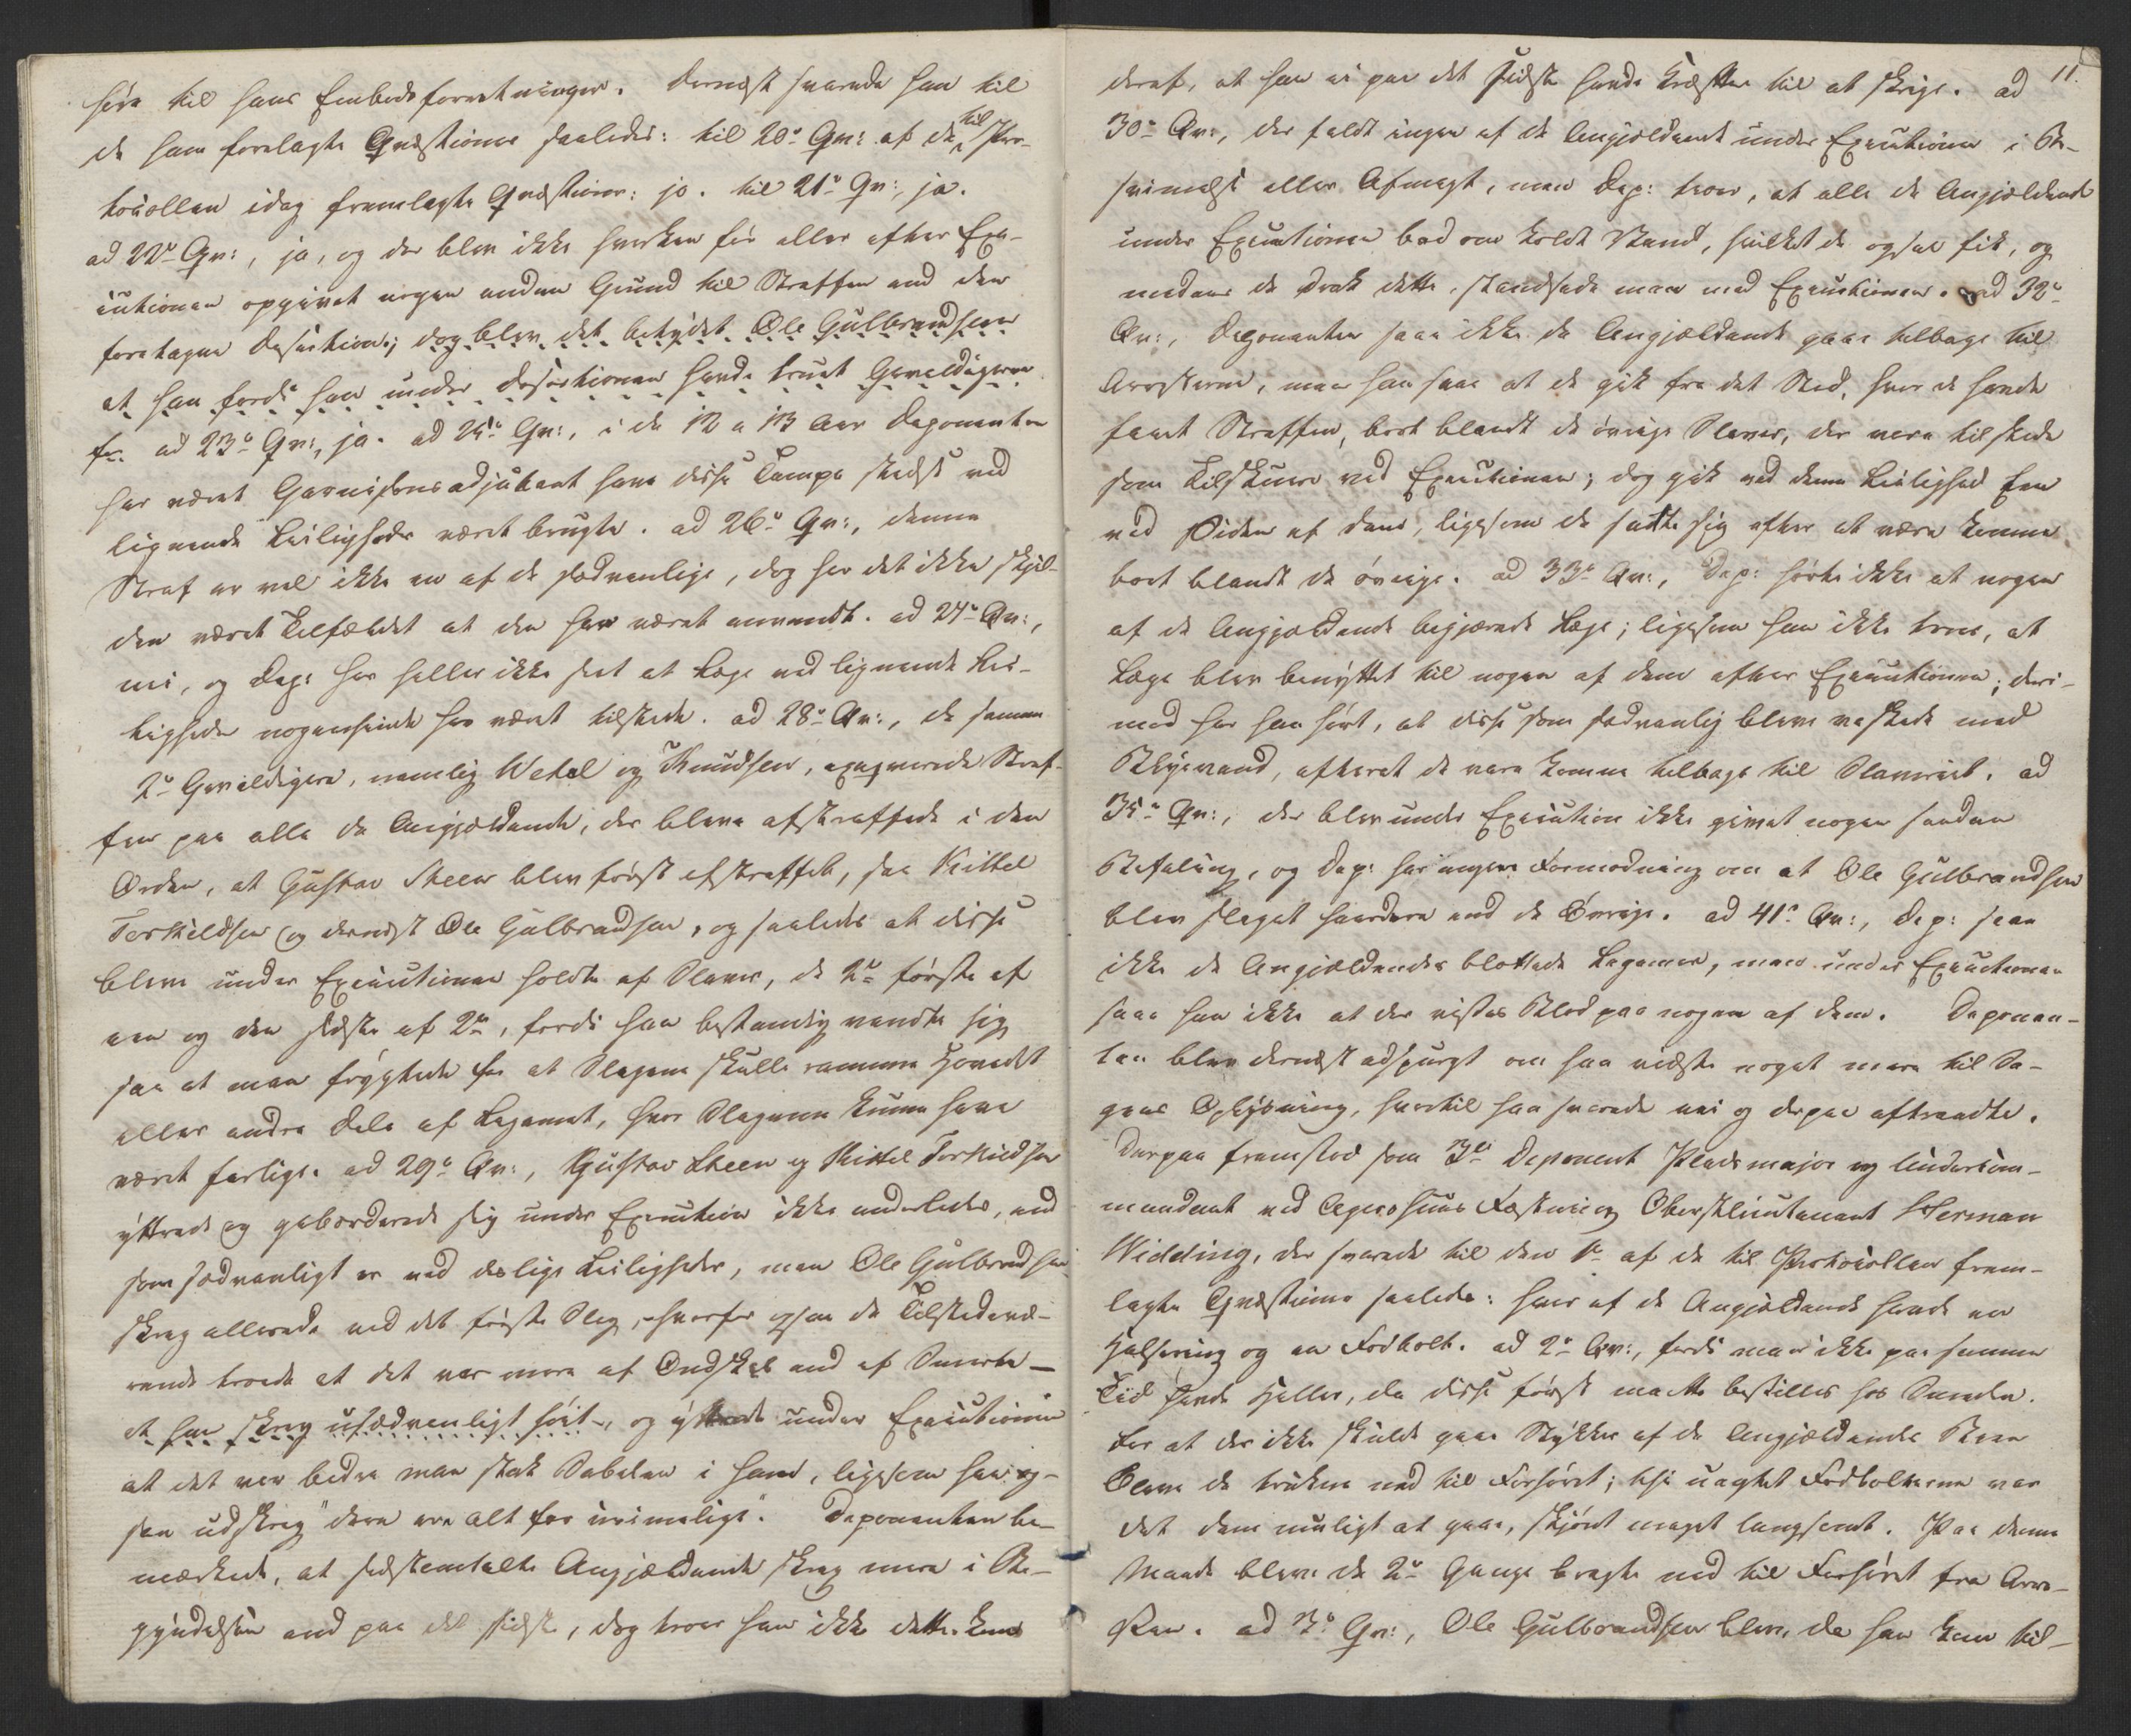 høre til hans Embedsforretninger. Dernæst svarede han til
de ham forelagte Qvæstioner saaledes: til 20de Qv: af de til Pro-
tocollen idag fremlagte Qvæstioner: jo. til 21de Qv:, ja.
ad 22de Qv:, ja, og der blev ikke hverken før eller efter Exe-
cutionen opgivet nogen anden Grund til Straffen end den
foretagne Desertion; dog blev det betydet Ole Gulbrandsen
at han fordi han under Desertionen havde truet Gevaldigeren
fr. ad 23de Qv:, ja. ad 25de Qv:, i de 12 a 13 Aar Deponenten
har været Garnisonsadjutant have disse Tampe stedse ved
lignende Leiligheder været brugte. ad 26de Qv:, denne
Straf er vel ikke en af de sædvanlige, dog har det ikke skjel-
den været Tilfældet at den har været anvendt. ad 27de Qv:,
nei, og Dep: har heller ikke seet at Læge ved lignende Lei-
ligheder nogensinde har været tilstede. ad 28de Qv:, de samme
2de Gevaldigere, nemlig Wetel og Knudsen, exeqverede Straf-
fen paa alle de Angjældende, der bleve afstraffede i den
Orden, at Gustav Steen blev først afstraffet, saa Kittel
Torkildsen og dernæst Ole Gulbrandsen, og saaledes at disse
bleve under Executionen holdte af Slaver, de 2de første af
een og den sidste af 2de, fordi han bestandig vendte sig
saa at man frygtede for at Slagene skulle ramme Hovedet
eller andre Dele af Legemet, hvor Slagene kunne have
været farlige. ad 29de Qv:, Gustav Steen og Kittel Torkildsen
yttrede og gebærdede sig under Execution ikke anderledes, end
som sædvanligt er ved deslige Leiligheder, men Ole Gulbrandsen
skreg allerede ved det første Slag, hvorfor ogsaa de Tilstedevæ-
rende troede at det var mere af Ondskab end af Smerte –
at han skreg usædvanligt høit –, og yttrede under Executionen
at det var bedre man stak Sabelen i ham, ligesom han og-
saa udskreg "dere ere alt for urimelige". Deponenten be-
mærkede, at sidstomtalte Angjældende skreg mere i Be-
gyndelsen end paa det sidste, dog troer han ikke dette kom
11.
deraf, at han ei paa det sidste havde Kræfter til at skrige. ad
30de Qv:, der faldt ingen af de Angjældende under Executionen i Be-
svimelse eller Afmagt, men Dep: troer, at alle de Angjældende
under Executionen bad om koldt Vand, hvilket de ogsaa fik, og
medens de drak dette, standsede man med Executionen. ad 32de
Qv:, Deponenten saae ikke de Angjældende gaae tilbage til
Arresterne, men han saae at de gik fra det Sted, hvor de havde
faaet Straffen, bort blandt de øvrige Slaver, der vare tilstede
som Tilskuere ved Executionen; dog gik ved denne Leilighed Een
ved Siden af dem, ligesom de satte sig efter at være komne
bort blandt de øvrige. ad 33de Qv:, Dep: hørte ikke at nogen
af de Angjældende begjærede Læge; ligesom han ikke troer, at
Læge blev benyttet til nogen af dem efter Executionen; deri-
mod har han hørt, at disse som sædvanlig bleve vaskede med
Blyevand, efterat de vare komne tilbage til Slaveriet. ad
35de Qv:, der blev under Execution ikke givet nogen saadan
Befaling, og Dep: har ingen Formodning om at Ole Gulbrandsen
blev slaget haardere end de Øvrige. ad 41de Qv:, Dep: saae
ikke de Angjældendes blottede Legemer, men under Executionen
saae han ikke at der vistes Blod paa nogen af dem. Deponen-
ten blev dernæst adspurgt om han vidste noget mere til Sa-
gens Oplysning, hvortil han svarede nei og derpaa aftraadte.
Derpaa fremstod som 3die Deponent Pladsmajor og Undercom-
mandant ved Agershuus Fæstning Oberstlieutenant Herman
Widding, der svarede til den 1ste af de til Protocollen frem-
lagte Qvæstioner saaledes: hver af de Angjældende havde en
Halsering og en Fodbolt. ad 2de Qv:, fordi man ikke paa samme
Tid havde Heller, da disse først maatte bestilles hos Smeden.
For at der ikke skulde gaae Stykker af de Angjældendes Been
bleve de trukne ned til Forhøret; thi uagtet Fodboltene var
det dem muligt at gaae, skjønt meget langsomt. Paa denne
Maade bleve de 2de Gange bragte ned til Forhøret fra Arre-
sten. ad 3de Qv:, Ole Gulbrandsen blev, da han kom til-